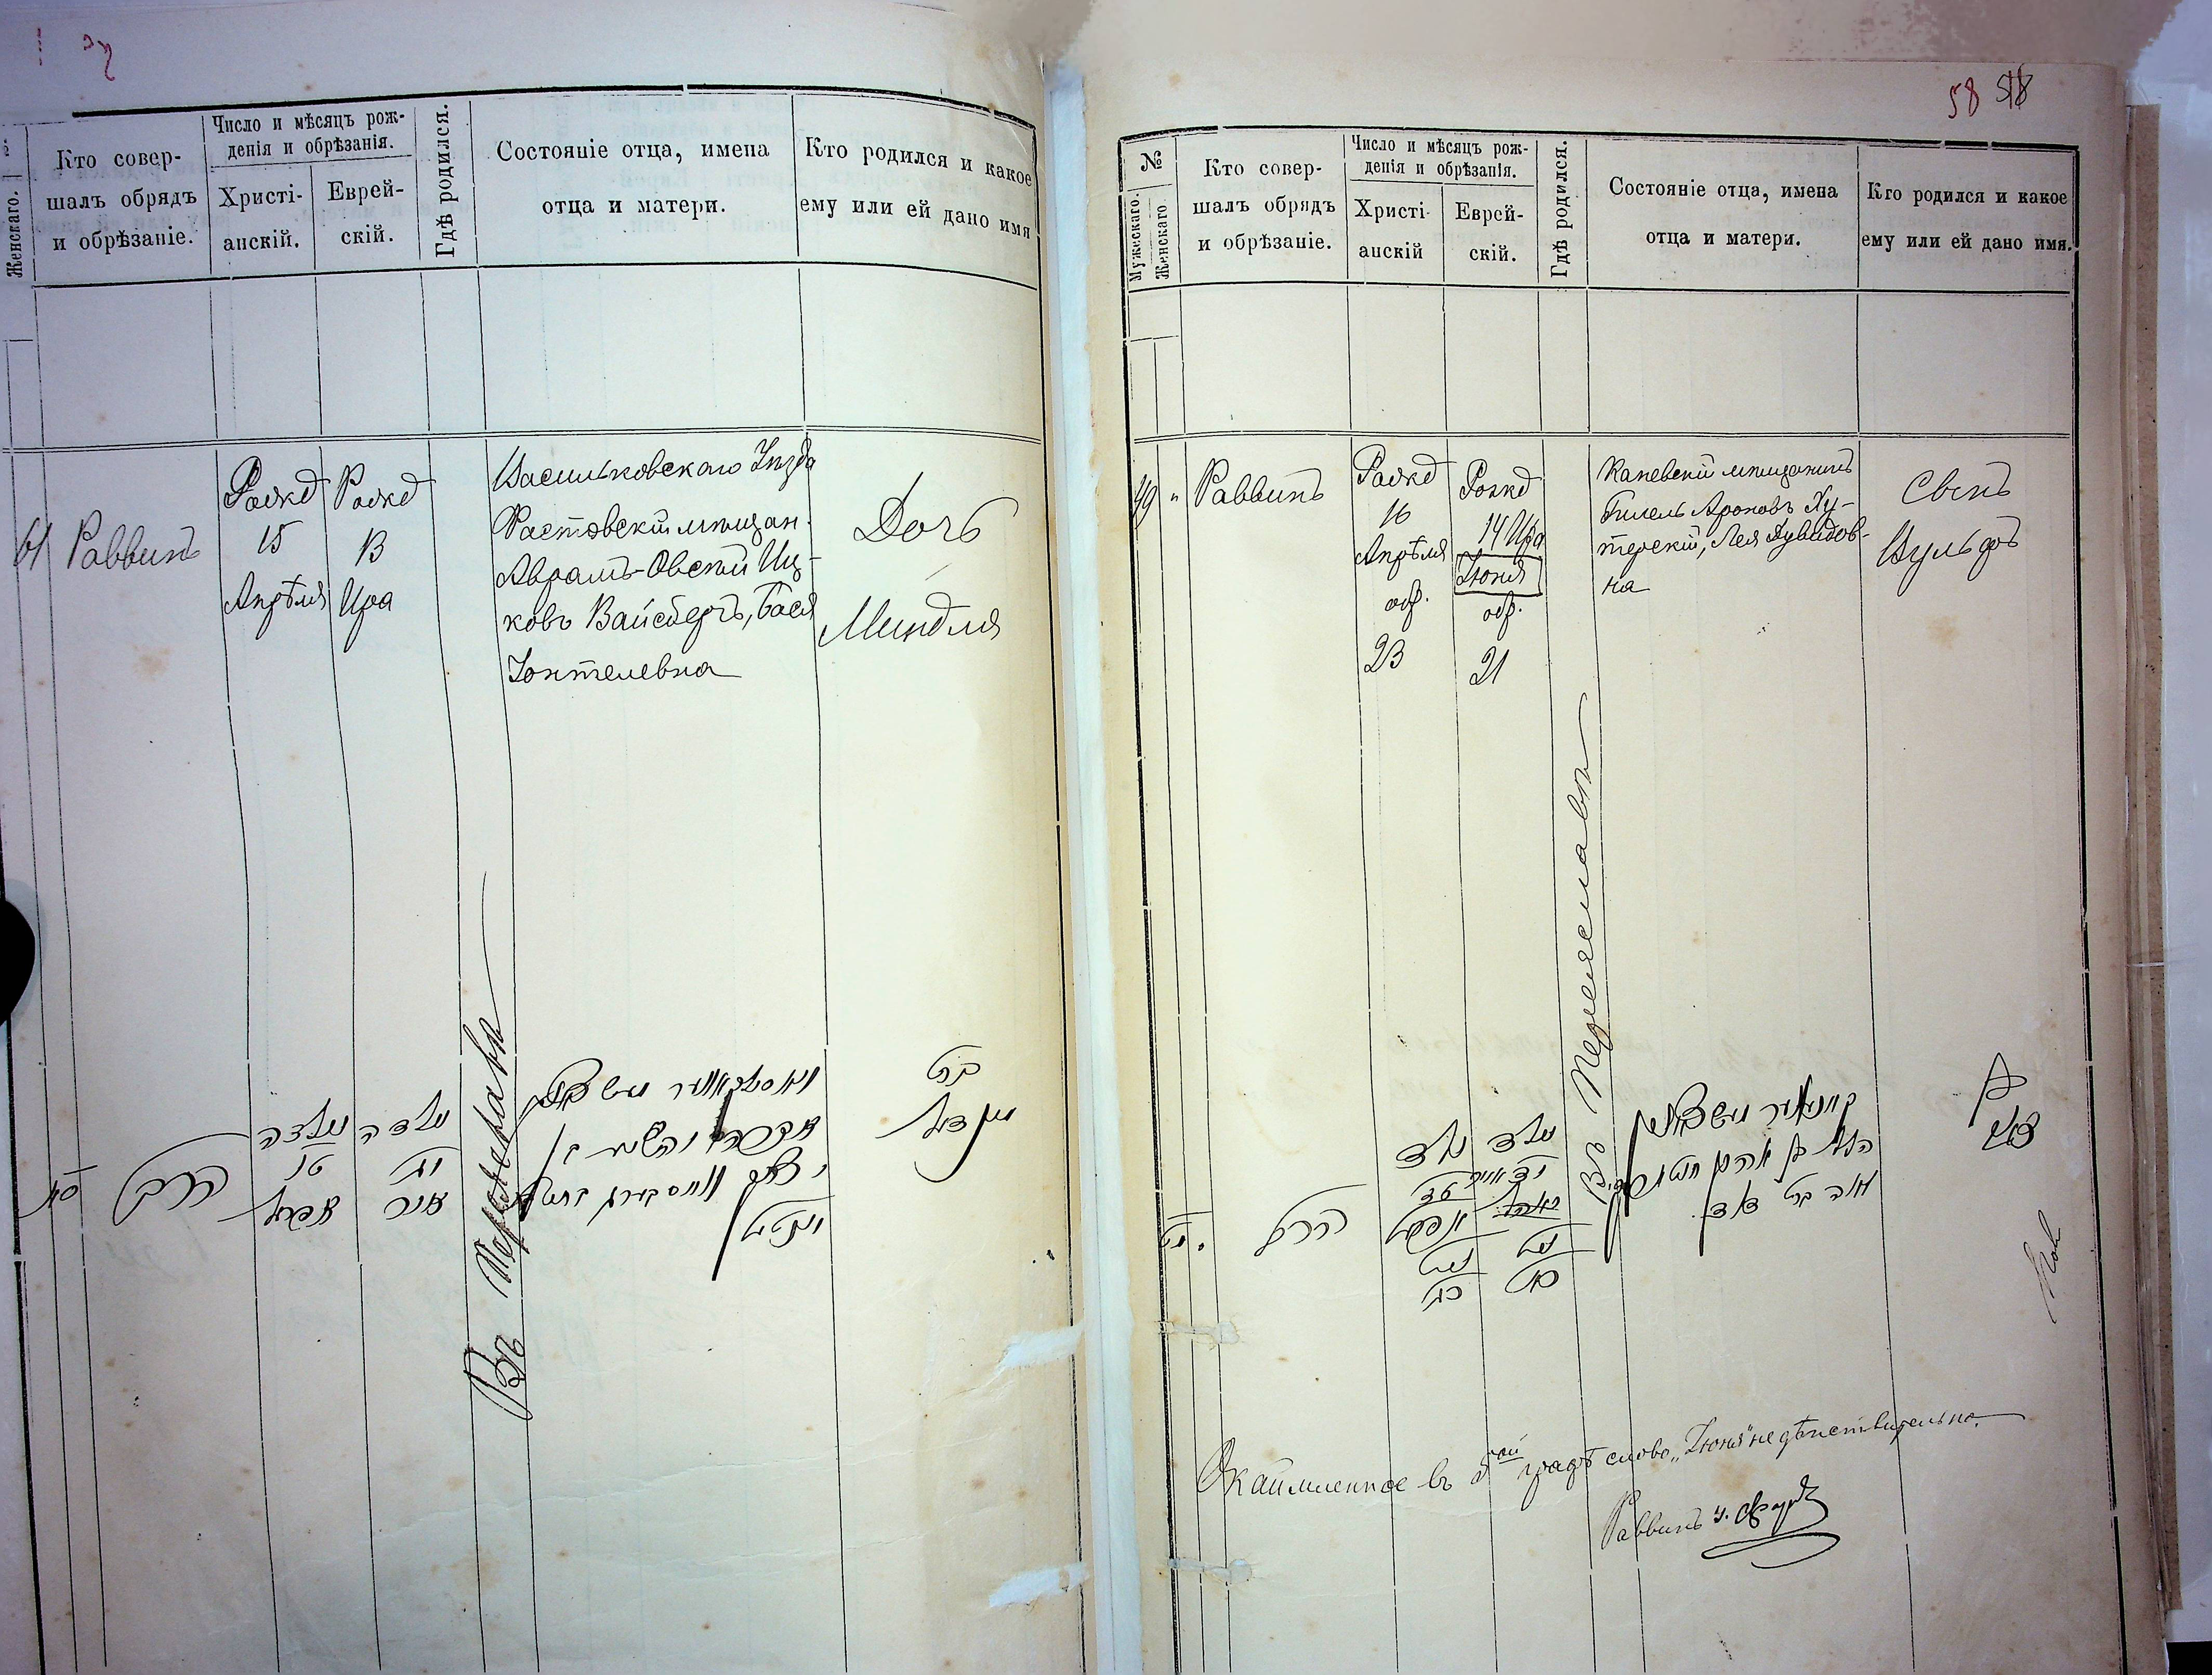 58 58
Женскаго.
Кто совер-
шалъ обрядъ
и обрѣзаніе.
Число и мѣсяцъ рож-
денія и обрѣзанія.
Христі-
анскій.
Еврей-
скій.
Гдѣ родился.
Состояніе отца, имена
отца и матери.
Кто родился и какое
ему или ей дано имя
Раввинъ
Рожд
15
Апрѣля
Рожд
13
Ира
Васильковскаго Уѣзда
Фастовскій мѣщан.
Аврамъ-Овсей Иц-
ковъ Вайсбергъ, Бася
Іонтелевна
Дочь
Миндля
Въ Переяславѣ
בת
מינדל
הרב
נולדה
טו
אפריל
נולדה
יג
אייר
№
Мужескаго.
Женскаго
Кто совер-
шалъ обрядъ
и обрѣзаніе.
Число и мѣсяцъ рож-
денія и обрѣзанія.
Христі-
анскій
Еврей-
скій.
Гдѣ родился.
Состояніе отца, имена
отца и матери.
Кто родился и какое
ему или ей дано имя.
49 " Раввинъ
Рожд
16
Апрѣля
обр.
23
Рожд
14 Ира
Іюня
обр.
21
Каневскій мѣщанинъ
Гилель Ароновъ Ху-
терскій, Лея Дувидов-
на
Сынъ
Вульфъ
Въ Переяславѣ
הרב
נולד
נולד
הלל בן אהרן
לאה בת דוד
בן
וואלף
Окаймленное въ 5ой графѣ слово „Іюня" не дѣйствительно.
Раввинъ